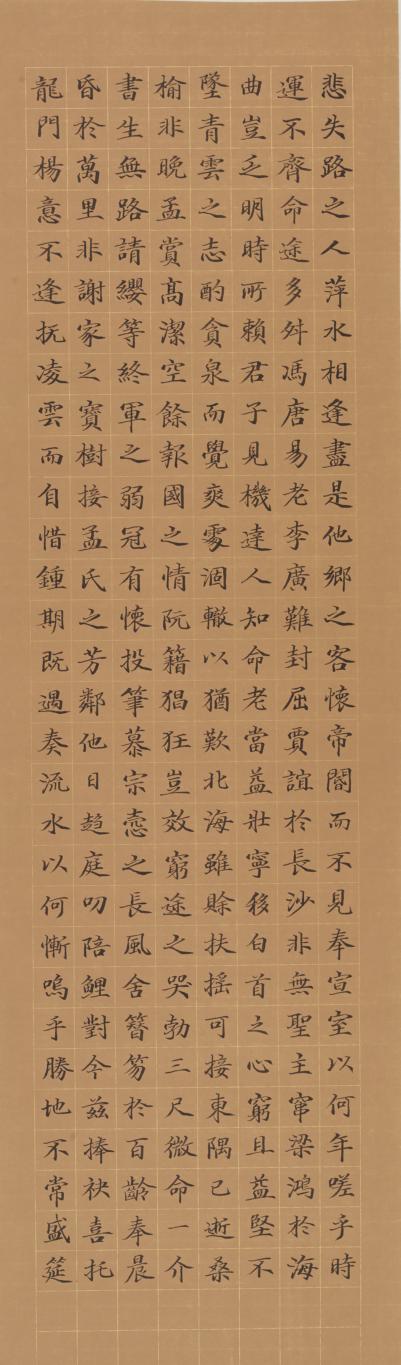 悲失路之人萍水相逢盡是他鄉之客懷帝閽而不見奉宣室以何年嗟乎時
運不齊命途多舛馮唐易老李廣難封屈賈誼於長沙非無聖主竄梁鴻於海
曲豈乏明時所賴君子見機達人知命老當益壯寧移白首之心窮且益堅不
墜青雲之志酌貪泉而覺爽處涸轍以猶歎北海雖賒扶搖可接東隅已逝桑
榆非晚孟賞髙潔空餘報國之情阮籍猖狂豈效窮途之哭勃三尺微命一介
書生無路請纓等終軍之弱冠有懷投筆慕宗愨之長風舍簪笏於百齡奉晨
昏於萬里非謝家之寶樹接孟氏之芳鄰他日趍庭叨陪鯉對今茲捧袂喜托
龍門楊意不逢抚凌雲而自惜鍾期既遇奏流水以何慚嗚乎勝地不常盛筵